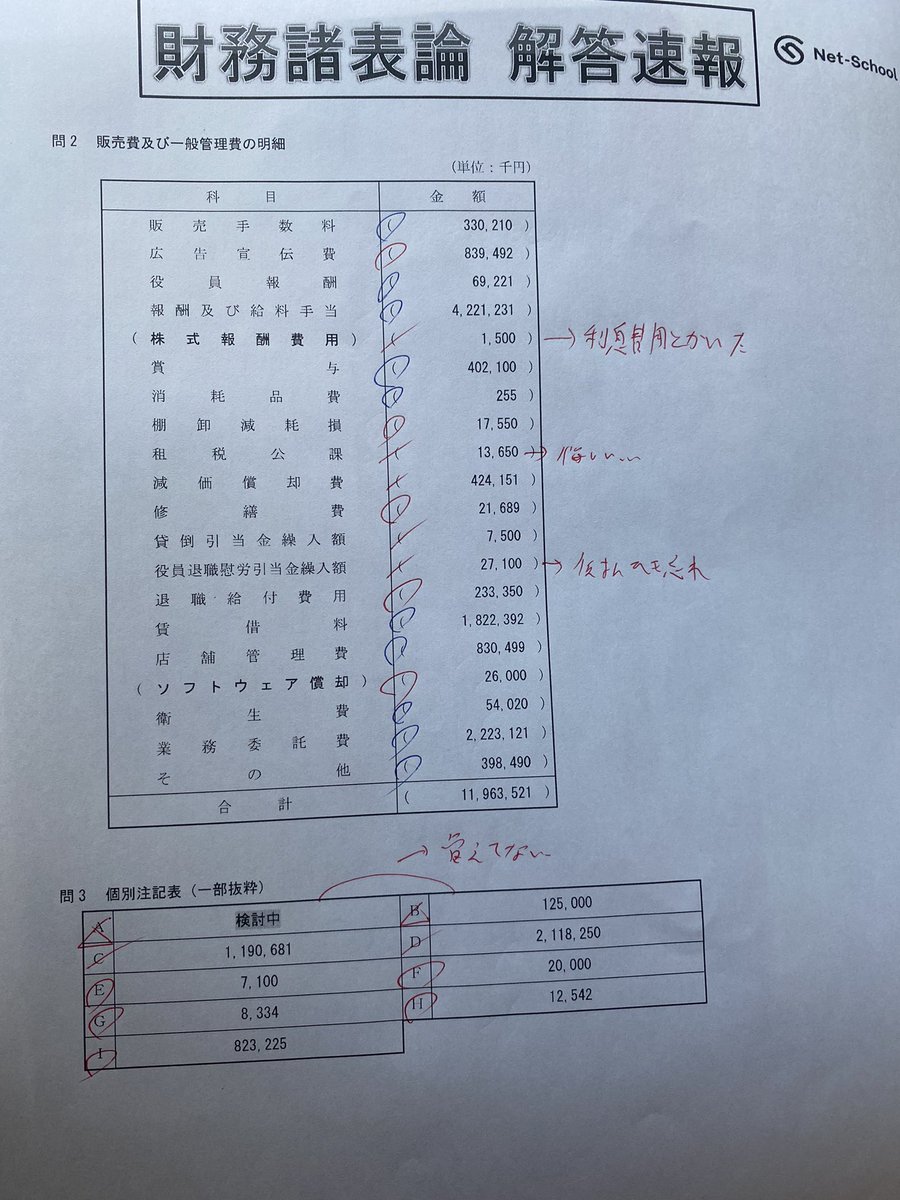 財務諸表論 解答速報
Net-School
問2 販売費及び一般管理費の明細
(単位:千円)
科目 金額
販売手数料 ( 330,210 )
広告宣伝費 ( 839,492 )
役員報酬 ( 69,221 )
報酬及び給料手当 ( 4,221,231 )
(株式報酬費用) ( 1,500 ) →利息費用とかいた
賞与 ( 402,100 )
消耗品費 ( 255 )
棚卸減耗損 ( 17,550 )
租税公課 ( 13,650 ) →悔しい…
減価償却費 ( 424,151 )
修繕費 ( 21,689 )
貸倒引当金繰入額 ( 7,500 )
役員退職慰労引当金繰入額 ( 27,100 ) →仮払ひも忘れ
退職給付費用 ( 233,350 )
賃借料 ( 1,822,392 )
店舗管理費 ( 830,499 )
(ソフトウェア償却) ( 26,000 )
衛生費 ( 54,020 )
業務委託費 ( 2,223,121 )
その他 ( 398,490 )
合計 ( 11,963,521 )
→覚えてない
問3 個別注記表(一部抜粋)
A 検討中 B 125,000
C 1,190,681 D 2,118,250
E 7,100 F 20,000
G 8,334 H 12,542
I 823,225